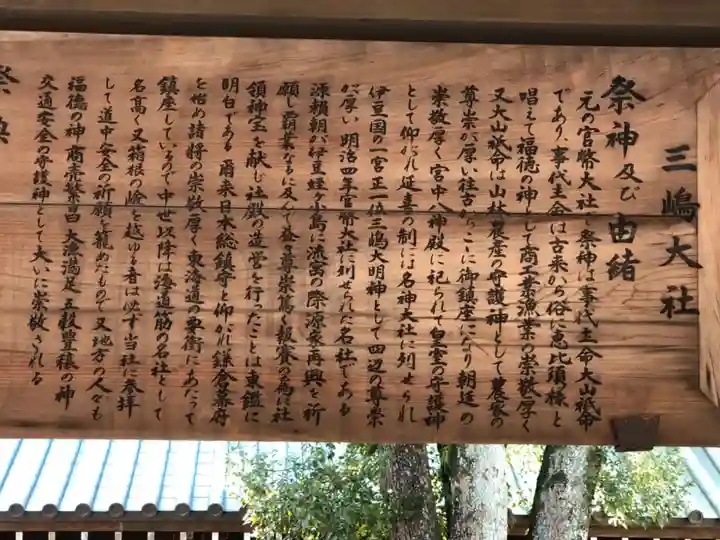 三嶋大社
祭神及び由緒
元の官幣大社で祭神は事代主命大山祇命
であり、事代主命は古来から俗に恵比須様と
唱えて福徳の神として商工業漁業の崇敬厚く
又大山祇命は山林農産の守護神として農家の
尊崇が厚い往古からこに御鎮座になり朝廷の
崇敬厚く宮中八神殿に祀られた皇室の守護神
として仰がれ延喜の制には名神大社に列せられ
伊豆国の一宮正一位三嶋大明神として四辺の尊崇
が厚い明治四年官幣大社に列せられた名社である
源頼朝が伊豆蛭ケ小島に流寓の際源家再興を祈
願し覇業なるに及んで益々尊崇篤く報賽の為め社
領神宝を献じ社殿の造営を行ったことは東鑑に
明白である爾来日本総鎮守と仰がれ鎌倉幕府
を始め諸将の崇敬厚く東海道の要衝にあたって
鎮座しているので中世以降は海道筋の名社として
名高く又箱根の峰を越ゆる者は必ず当社に参拝
して道中安全の祈願を籠めたもので又地方の人々も
福徳の神商売繁昌大漁満足五穀豊穣の神
交通安全の守護神として大いに崇敬される
祭典